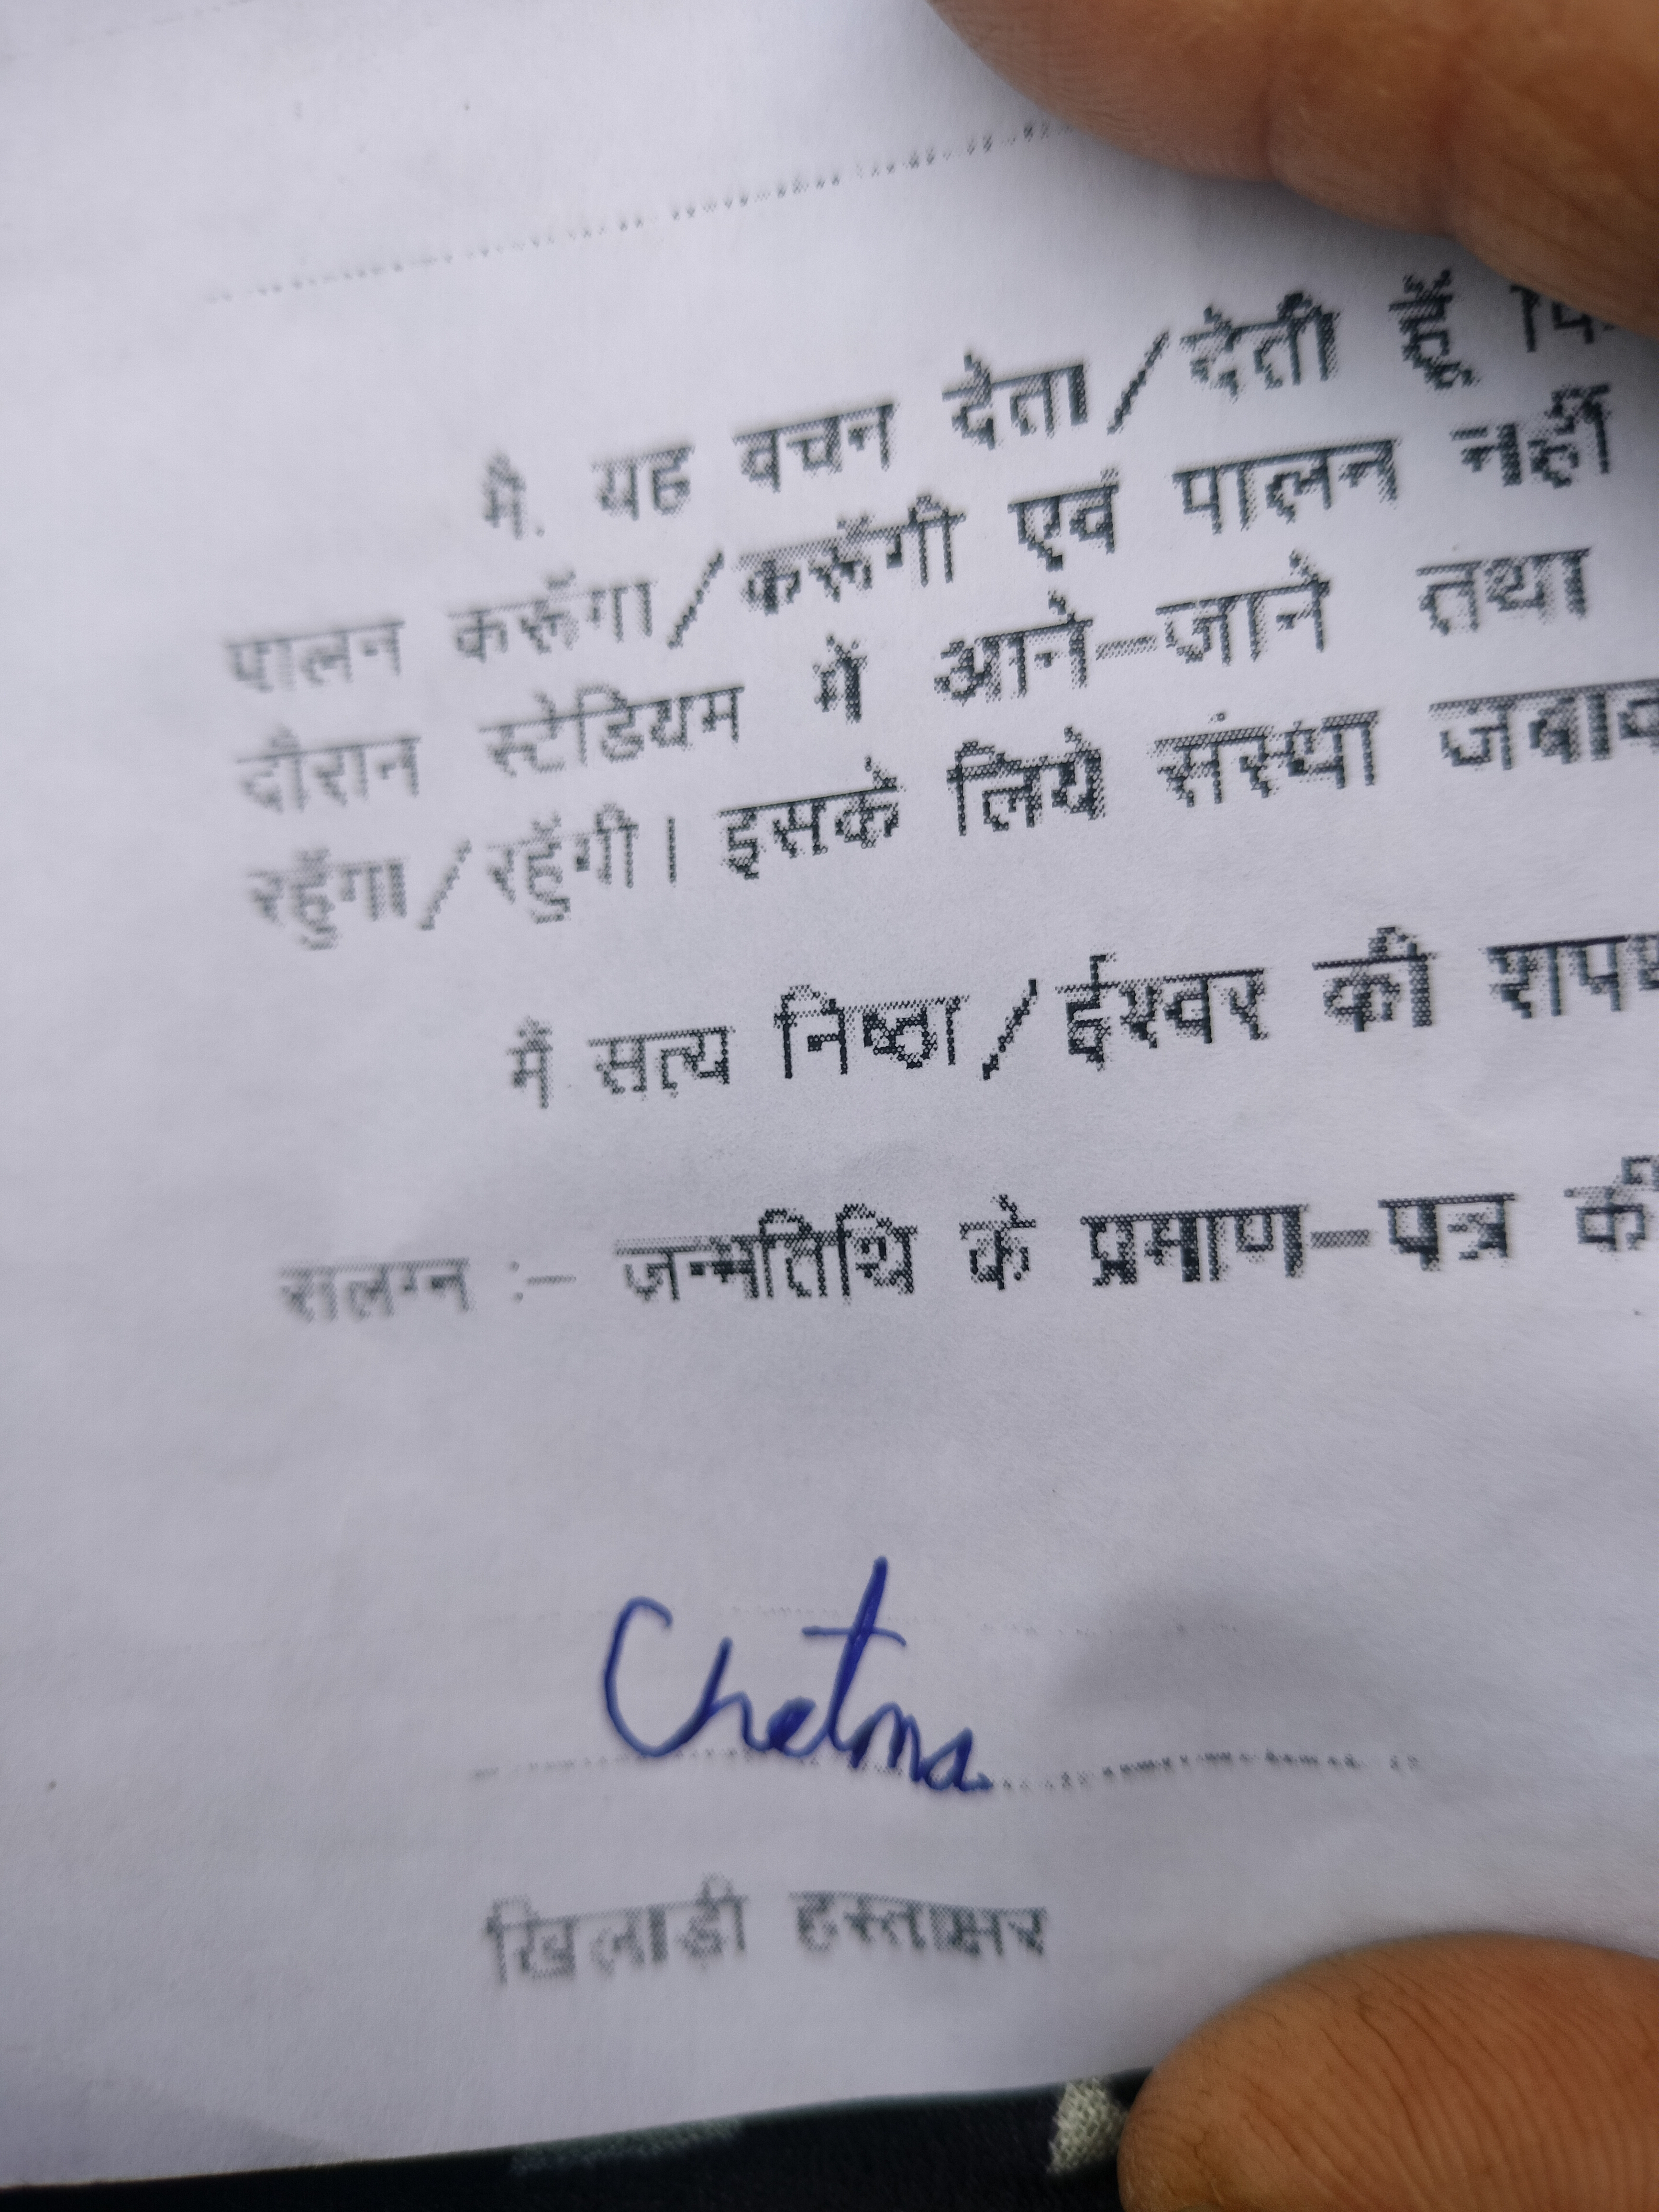 मै. यह वचन देता/देती हूँ
पालन करूँगा/करूँगी एवं पालन नहीं
दौरान स्टेडियम में आने-जाने तथा
रहूँगा/रहूँगी। इसके लिये संस्था
मैं सत्य निष्ठा/ईश्वर की
रालग्न :- जन्मतिथि के प्रमाण-पत्र
Chetna
खिलाड़ी हस्ताक्षर